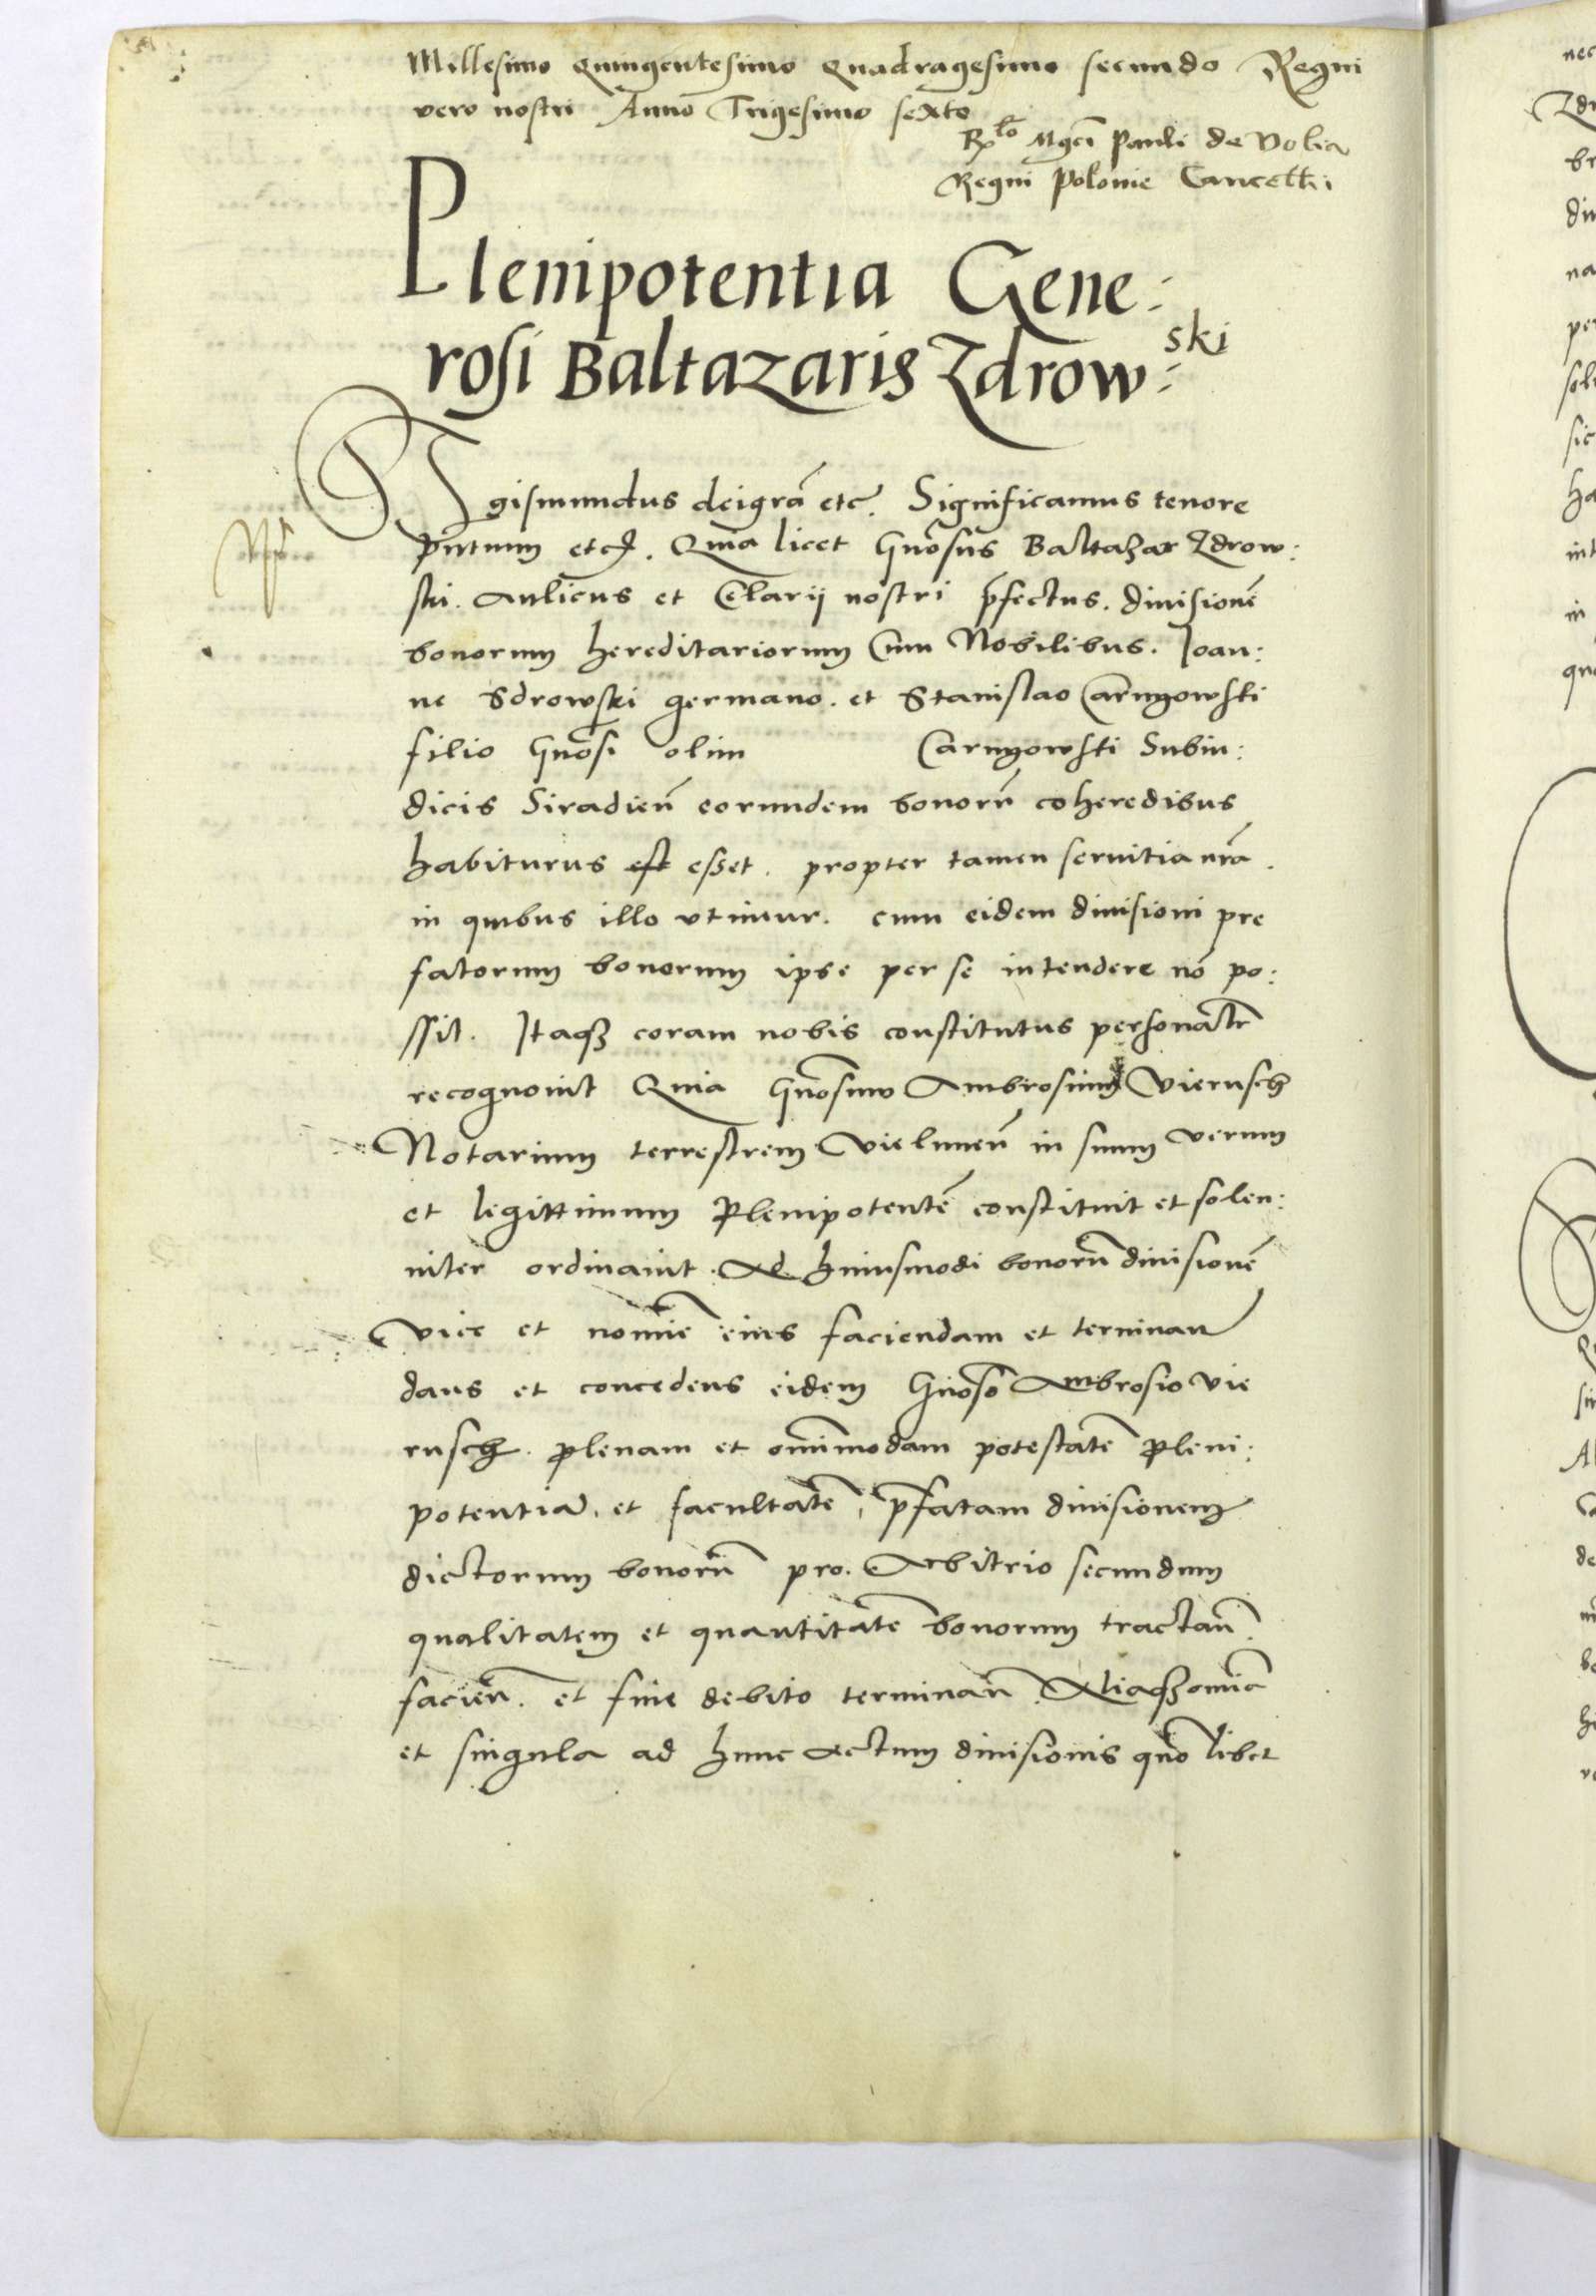 Millesimo Quingentesimo Quadragesimo secundo Regni
vero nostri Anno Trigesimo sexto
Rlo Mgci Pauli de Volia
Regni Polonie Cancellrii
Plenipotentia Gene:
rosi Baltazaris Zdrow:ski
Sigismundus dei grã etc. Significamus tenore
pñtium etc. Quia licet Gnosus Baltazar Zdrow:
ski. Aulicus et Celarii nostri p̃fectus. diuisionẽ
bonorum hereditariorum Cum Nobilibus. Joan:
ne Sdrowski germano. et Stanislao Carnyowski
filio Gnosi olim Carnyowski Subiu:
dicis Siradieñ eorundem bonorũ coheredibus
habiturus est esset. propter tamen seruitia nrã.
in quibus illo vtimur. cum eidem diuisioni pre
fatorum bonorum ipse per se intendere nõ po:
ssit. Itaqз coram nobis constitutus personaltr
recognouit Quia Gnosum Ambrosium Vierusch
Notarium terrestrem Vieluneñ in suum verum
et legittimum Plenipotentẽ constituit et solen:
niter ordinauit. Ad huiusmodi bonorũ diuisionẽ
vice et nomiẽ eius faciendam et terminan
dans et concedens eidem Gnoso Ambrosio Vie
rusch. plenam et omnimodam potestatẽ pleni:
potentiã. et facultatẽ, p̃fatam diuisionem
dictorum bonorũ pro. Arbitrio secundum
qualitatem et quantitatẽ bonorum tractañ.
facieñ. et fine debito terminañ. Aliaqз omiã
et singula ad hunc actum diuisionis quolibet